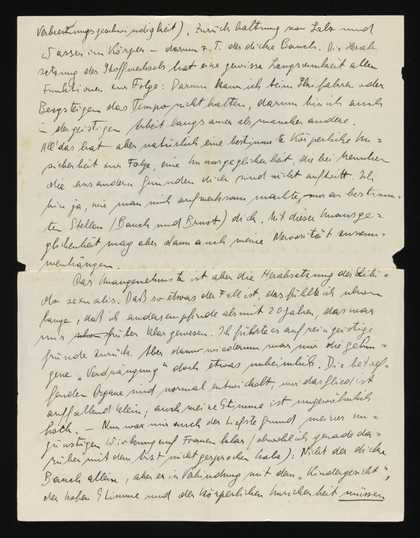 Verbrennungsgeschwindigkeit), Zurückhaltung von Salz und
Wasser im Körper – darum z. T. der dicke Bauch. Die Herab
setzung des Stoffwechsels hat eine gewisse Langsamkeit aller
Funktionen zur Folge: Darum kann ich beim Skifahren oder
Bergsteigen das Tempo nicht halten, darum bin ich auch
in der geistigen Arbeit langsamer als mancher andere.
All das hat aber natürlich eine bestimmte körperliche Un-
sicherheit zur Folge, eine Unausgeglichenheit, die bei Menschen
die aus andern Gründen dick sind nicht auftritt. Ich
bin ja, wie man mich aufmerksam machte, nur an bestimm-
ten Stellen (Bauch und Brust) dick. Mit dieser Unausge-
glichenheit mag aber dann auch meine Nervosität zusam-
menhängen.
Das Unangenehmste ist aber die Herabsetzung der Libi-
do sexualis. Daß so etwas der Fall ist, das fühlte ich schon
lange, daß ich anders empfinde als mit 20 Jahren, das war
mir schon früher klar gewesen. Ich führte es auf rein geistige
Gründe zurück. Aber dann wiederum war mir die gelun-
gene "Verdrängung" doch etwas unheimlich. Die betref-
fenden Organe sind normal entwickelt, nur das Glied ist
auffallend klein; auch meine Stimme ist ungewöhnlich
hoch. – Nun war mir auch der tiefste Grund meiner un-
günstigen Wirkung auf Frauen klar, (obwohl ich gerade da-
rüber mit dem Arzt nicht gesprochen habe): Nicht der dicke
Bauch allein, aber er in Verbindung mit dem "Kindergesicht",
der hohen Stimme und der körperlichen Unsicherheit müssen